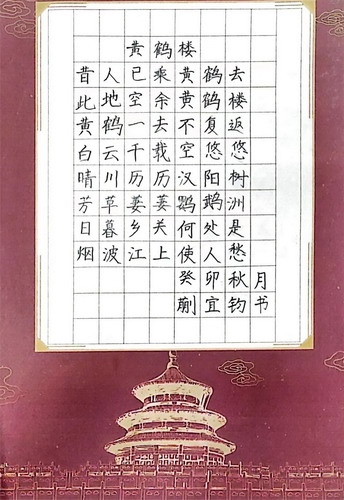 黄鹤楼
昔人已乘黄鹤去
此地空余黄鹤楼
黄鹤一去不复返
白云千载空悠悠
晴川历历汉阳树
芳草萋萋鹦鹉洲
日暮乡关何处是
烟波江上使人愁
癸卯秋月
宜钧书